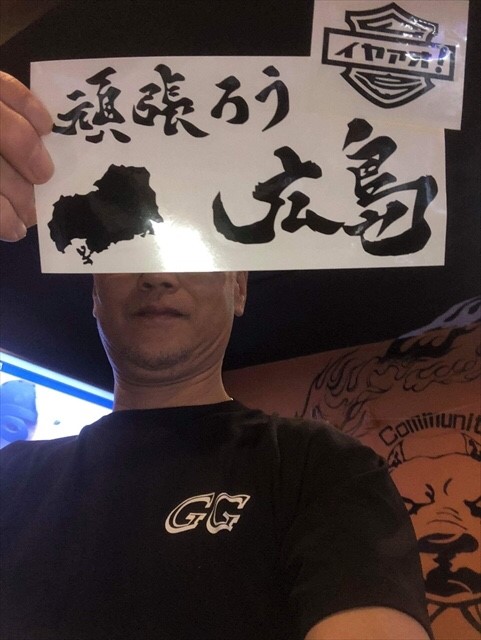 イヤァオ!
頑張ろう
広島
GG
Communit